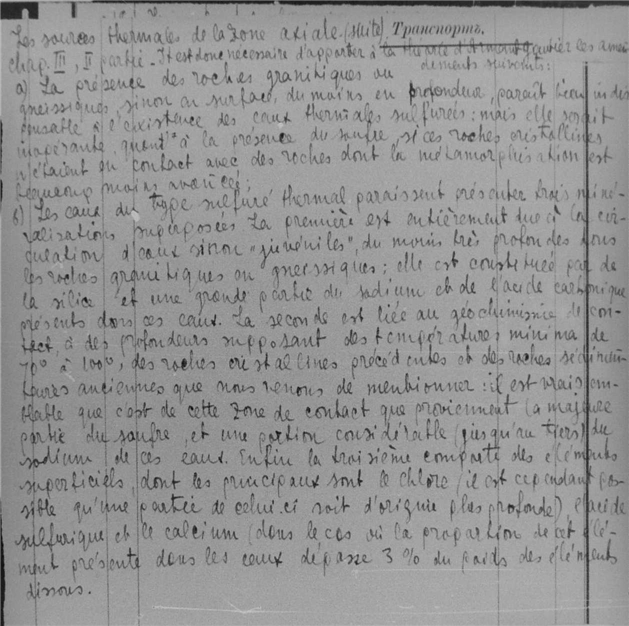 Les sources thermales de la zone axiale. (suite) Транспортъ.
chap. III, II partie. Il est donc nécessaire d'apporter à la théorie d'Armand Gautier les amen-
dements suivants:
a) La présence des roches granitiques ou
gneissiques, sinon en surface, du moins en profondeur, parait bien indis-
pensable à l'existence des eaux thermales sulfurées: mais elle serait
inopérante, quant à la présence du soufre, si ces roches cristallines
n'étaient en contact avec des roches dont la métamorphisation est
beaucoup moins avancée;
b) Les eaux du type sulfuré thermal paraissent présenter trois miné-
ralisations superposées. La première est entièrement due à la cir-
culation d'eaux sinon "juvéniles", du moins très profondes dans
les roches granitiques ou gneissiques; elle est constituée par de
la silice et une grande partie du sodium et de l'acide carbonique
présents dans ces eaux. La seconde est liée au géochimisme de con-
tact, à des profondeurs supposant des températures minima de
70° à 100°, des roches cristallines précédentes et des roches sédimen-
taires anciennes que nous venons de mentionner: il est vraisem-
blable que c'est de cette zone de contact que proviennent la majeure
partie du soufre, et une portion considérable (jusqu'au tiers) du
sodium de ces eaux. Enfin la troisième comporte des éléments
superficiels, dont les principaux sont le chlore (il est cependant pos-
sible qu'une partie de celui-ci soit d'origine plus profonde) l'acide
sulfurique et le calcium (dans le cas où la proportion de cet élé-
ment présente dans les eaux dépasse 3% du poids des éléments
dissous.